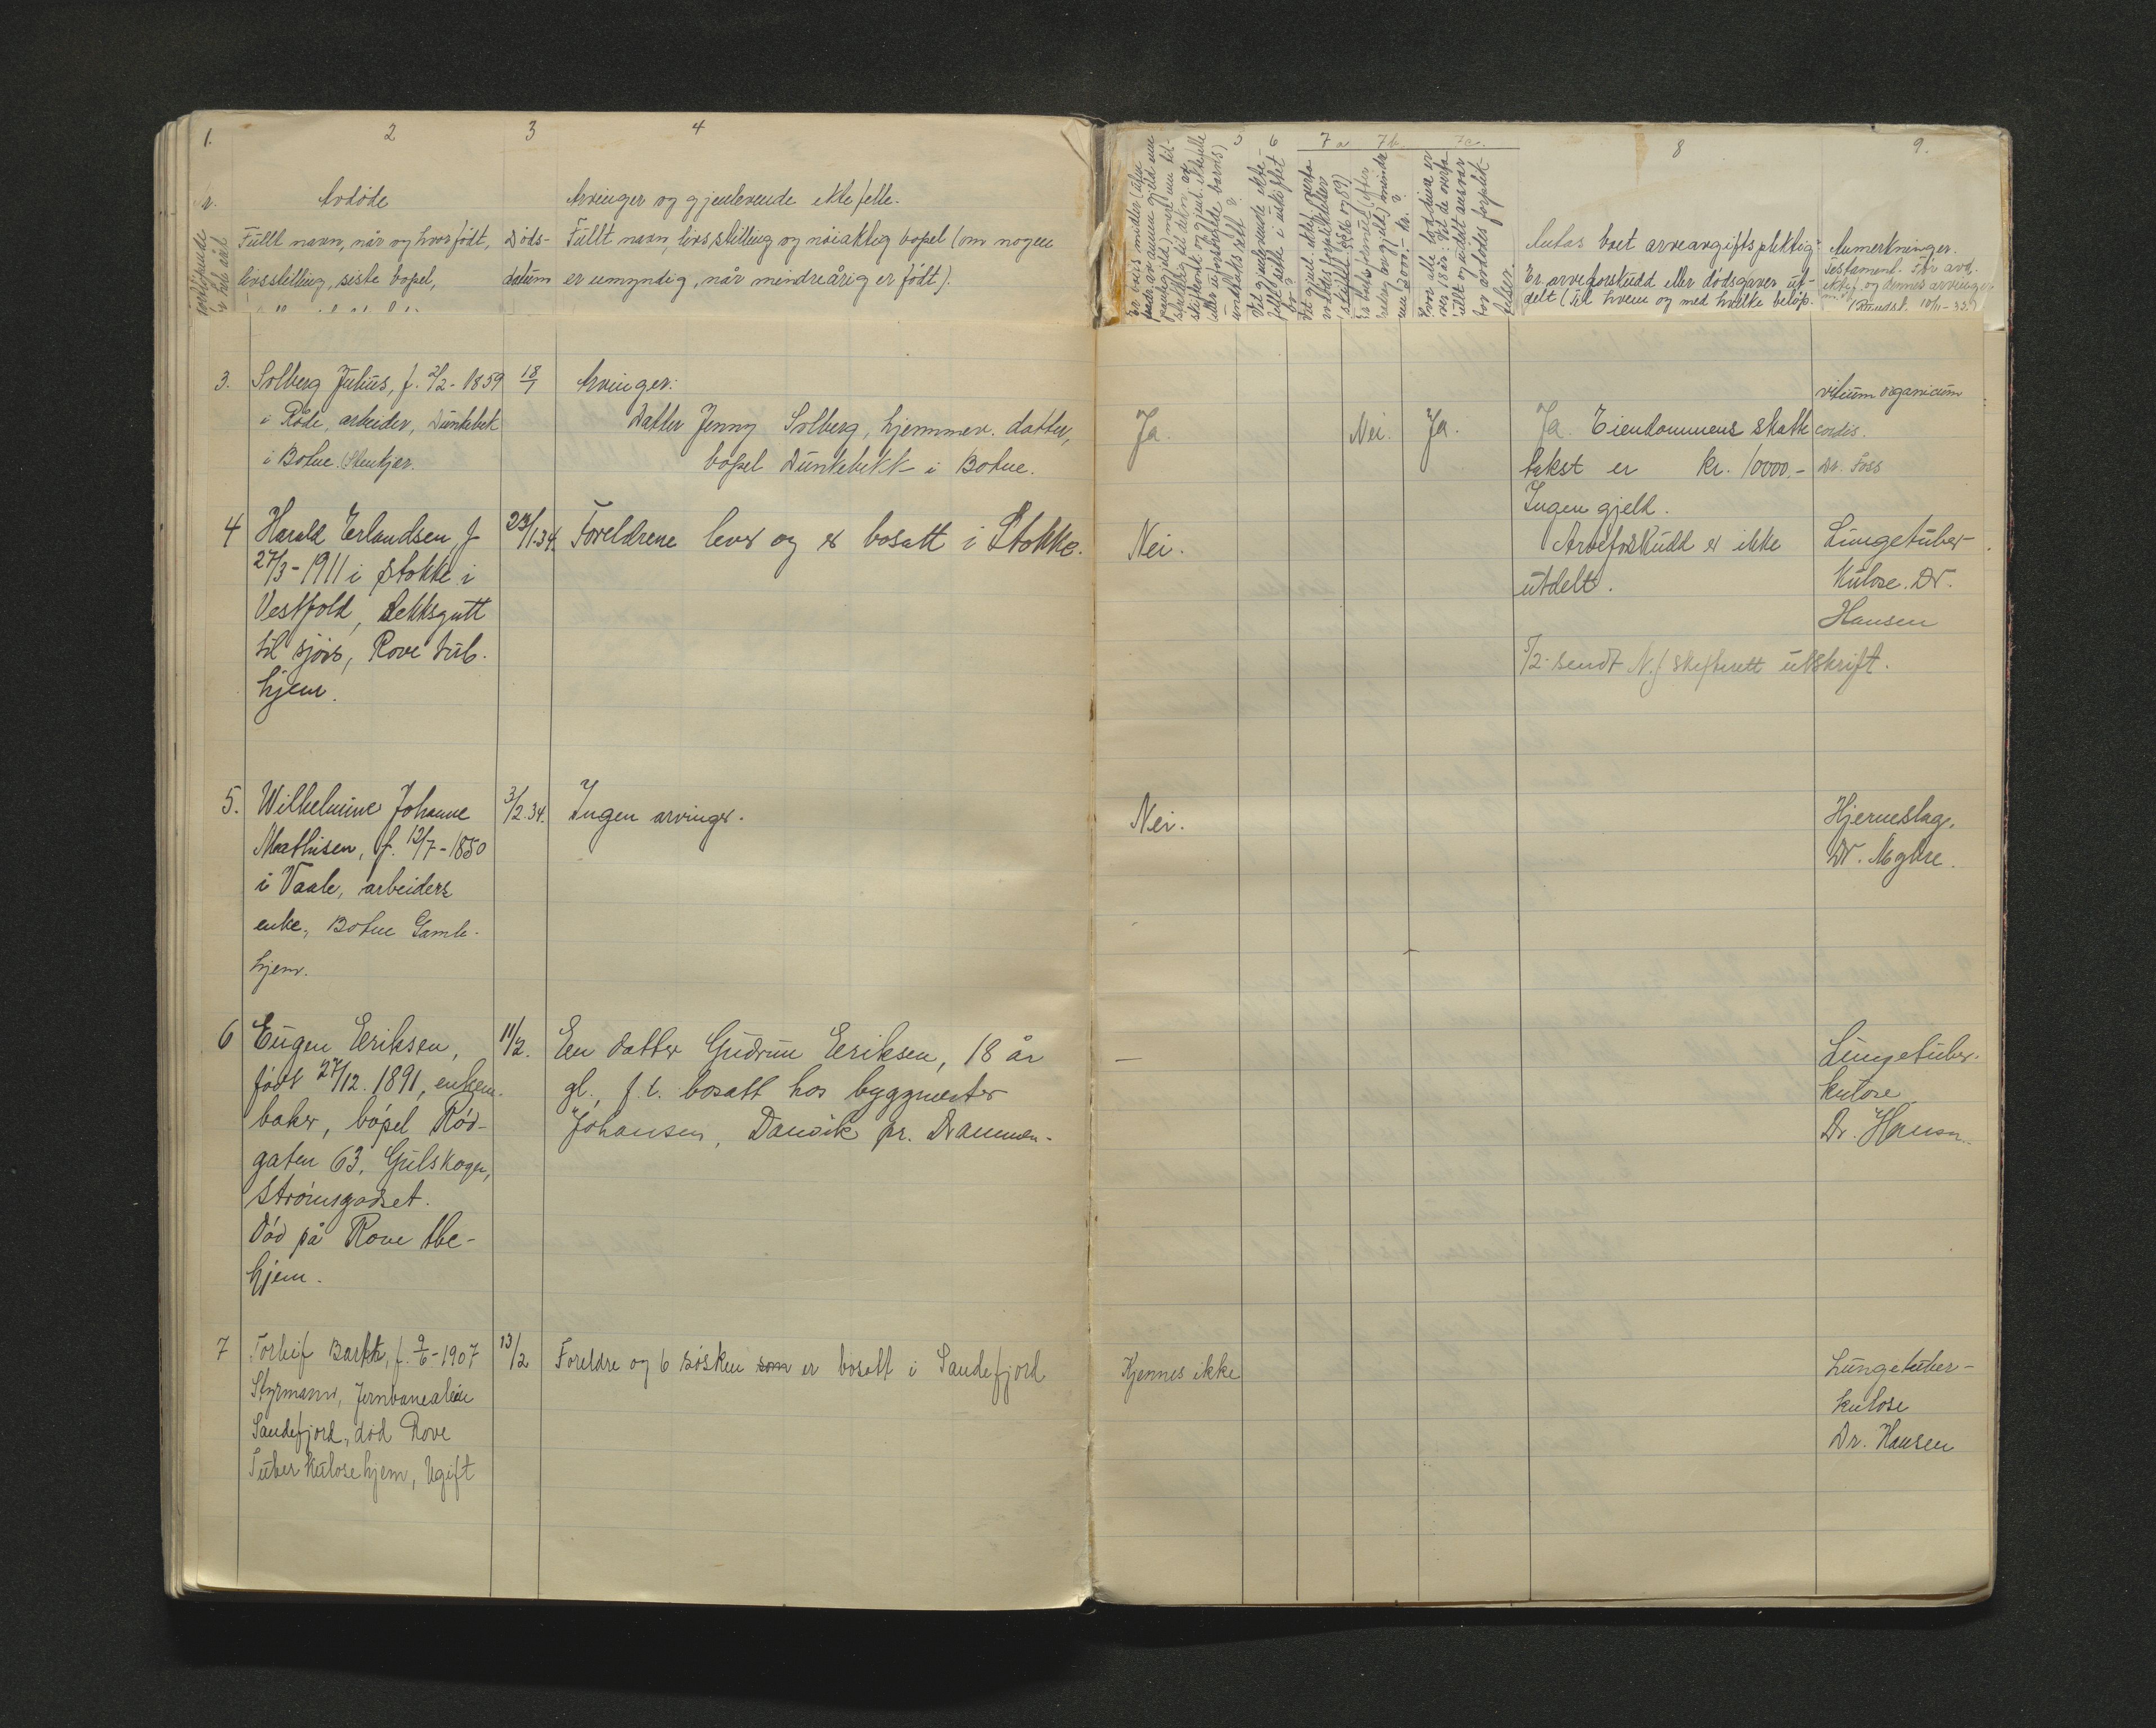 1. 2 3 4
Avdöde
Arvinger og gjenlevende ektefelle.
Fullt navn, når og hvor født,
livsstilling, siste bopel,
Døds-
datum
Fullt navn, livsstilling og nöiaktig bopel (om nogen
er umyndig, når mindreårig er født).
3. Solberg Julius, f. 2/2-1859
i Råde, arbeider, Dunkebek
i Botne. (Stenkjær.
18/1
Arvinger:
Datter Jenny Solberg, hjemmev. datter,
bopel Dunkebekk i Botne.
4 Harald Erlandsen, f
27/3-1911 i Stokke i
Vestfold, Dekksgutt
til sjøss, Rove tub.
hjem.
23/1.34.
Foreldrene lever og er bosatt i Stokke.
5. Wilhelmine Johanne
Mathisen, f. 12/7-1850
i Vaale, arbeiders
enke, Botne Gamle-
hjem.
3/2.34.
Ingen arvinger.
6 Eugen Eriksen,
født 27/12. 1891, enkem.
baker, bopel Rød-
gaten 63, Gulskogen,
Strømsgodset.
Død på Rove tbc-
hjem.
11/2.
En datter Gudrun Eriksen, 18 år
gl., f.t. bosatt hos byggmester
Johansen, Danvik pr. Drammen.
7 Torleif Barth, f. 9/6-1907
Styrmann, Jernbanealleen
Sandefjord, død Rove
Tuberkulosehjem, Ugift
13/2
Foreldre og 6 søsken som er bosatt i Sandefjord
5 6 7a 7b. 7c. 8 9.
Antas boet arveavgiftspliktig?
Er arveforskudd eller dødsgaver ut-
delt (til hvem og med hvilke beløp.
Anmerkninger.
Testament. For avd.
ektef. og dennes arvinger
Ja.
Nei.
Ja.
Ja. Eiendommens skatte
takst er kr. 10000,-
Ingen gjeld.
vitium organicum
cordis.
Dr. Foss
Nei.
Arveforskudd er ikke
utdelt.
Lungetuber-
kulose. Dr.
Hansen
5/2. sendt N.J skifterett utskrift.
Nei.
Hjerneslag.
Dr. Møglre.
—
Lungetuber-
kulose
Dr. Hansen.
Kjennes ikke
Lungetuber-
kulose
Dr. Hansen